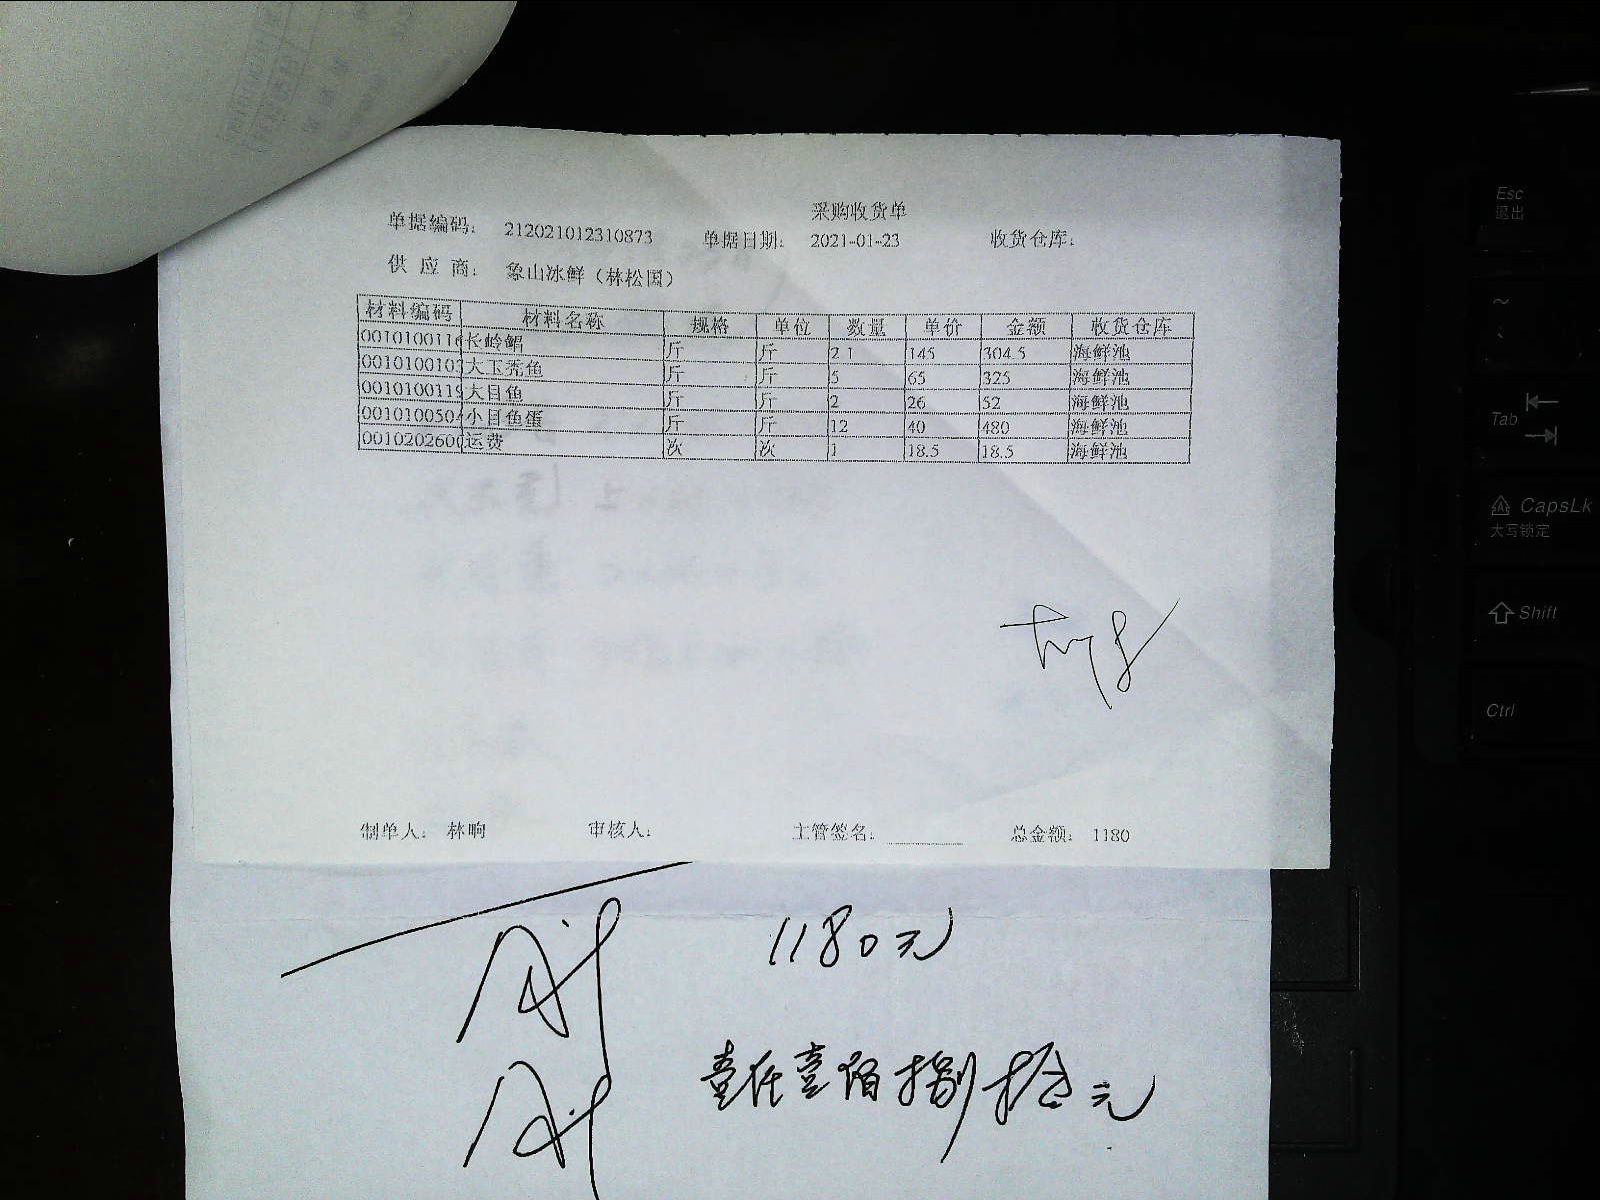 采购收货单
单据编码： 212021012310873 单据日期： 2021-01-23 收货仓库：
供 应 商： 象山冰鲜（林松国）
材料编码 材料名称 规格 单位 数量 单价 金额 收货仓库
0010100116 长岭鲳 斤 斤 2.1 145 304.5 海鲜池
001010010 大玉秃鱼 斤 斤 5 65 325 海鲜池
001010011 大目鱼 斤 斤 2 26 52 海鲜池
001010050 小目鱼蛋 斤 斤 12 40 480 海鲜池
001020260 运费 次 次 1 18.5 18.5 海鲜池
制单人： 林晌 审核人： 主管签名： 总金额： 1180
1180元
壹仟壹佰捌拾元
Esc
退出
~
Tab
CapsLk
大写锁定
Shift
Ctrl